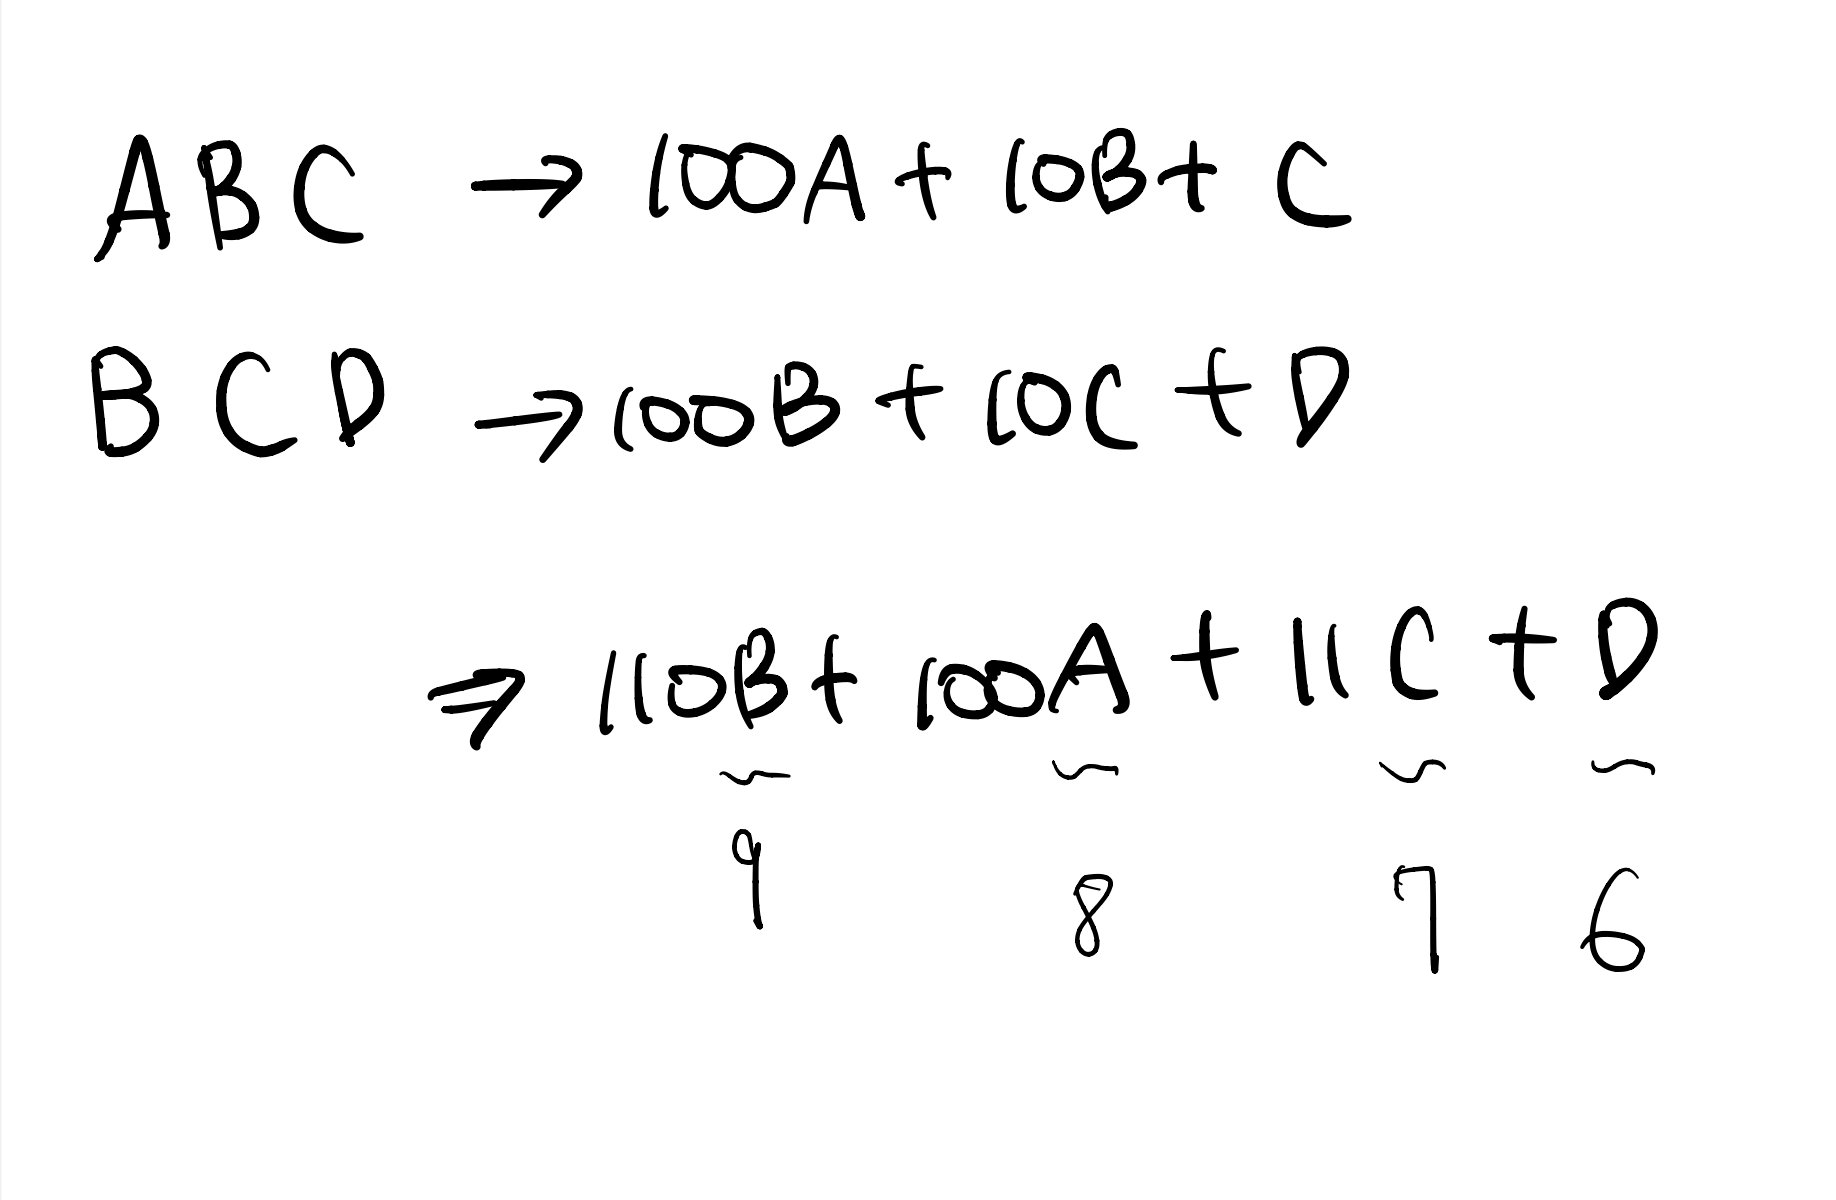 ABC → 100A + 10B + C
BCD → 100B + 10C + D
⇒ 110B + 100A + 11C + D
9 8 7 6